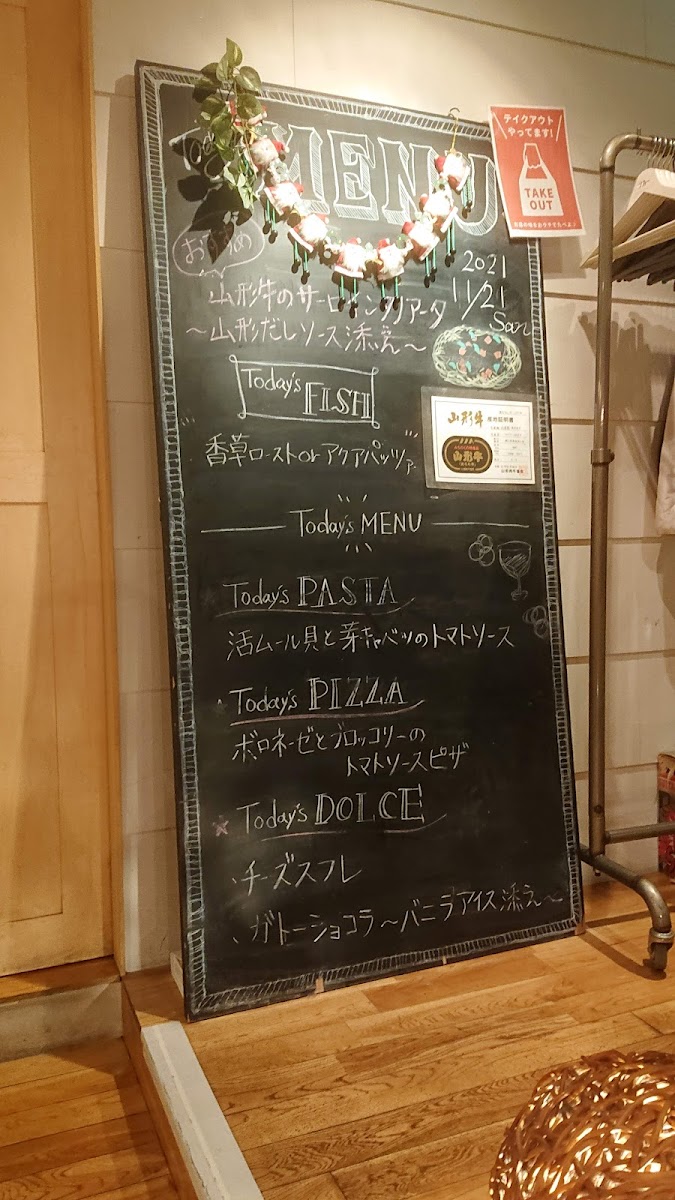 MENU
テイクアウト
やってます!
TAKE
OUT
おすすめ
2021
11/21
Sun
山形牛のサーロインタリアータ
～山形だしソース添え～
Today's FISH
山形牛
山形牛
香草ローストorアクアパッツァ
Today's MENU
Today's PASTA
活ムール貝と芽キャベツのトマトソース
Today's PIZZA
ボロネーゼとブロッコリーの
トマトソースピザ
Today's DOLCE
、チーズスフレ
、ガトーショコラ～バニラアイス添え～